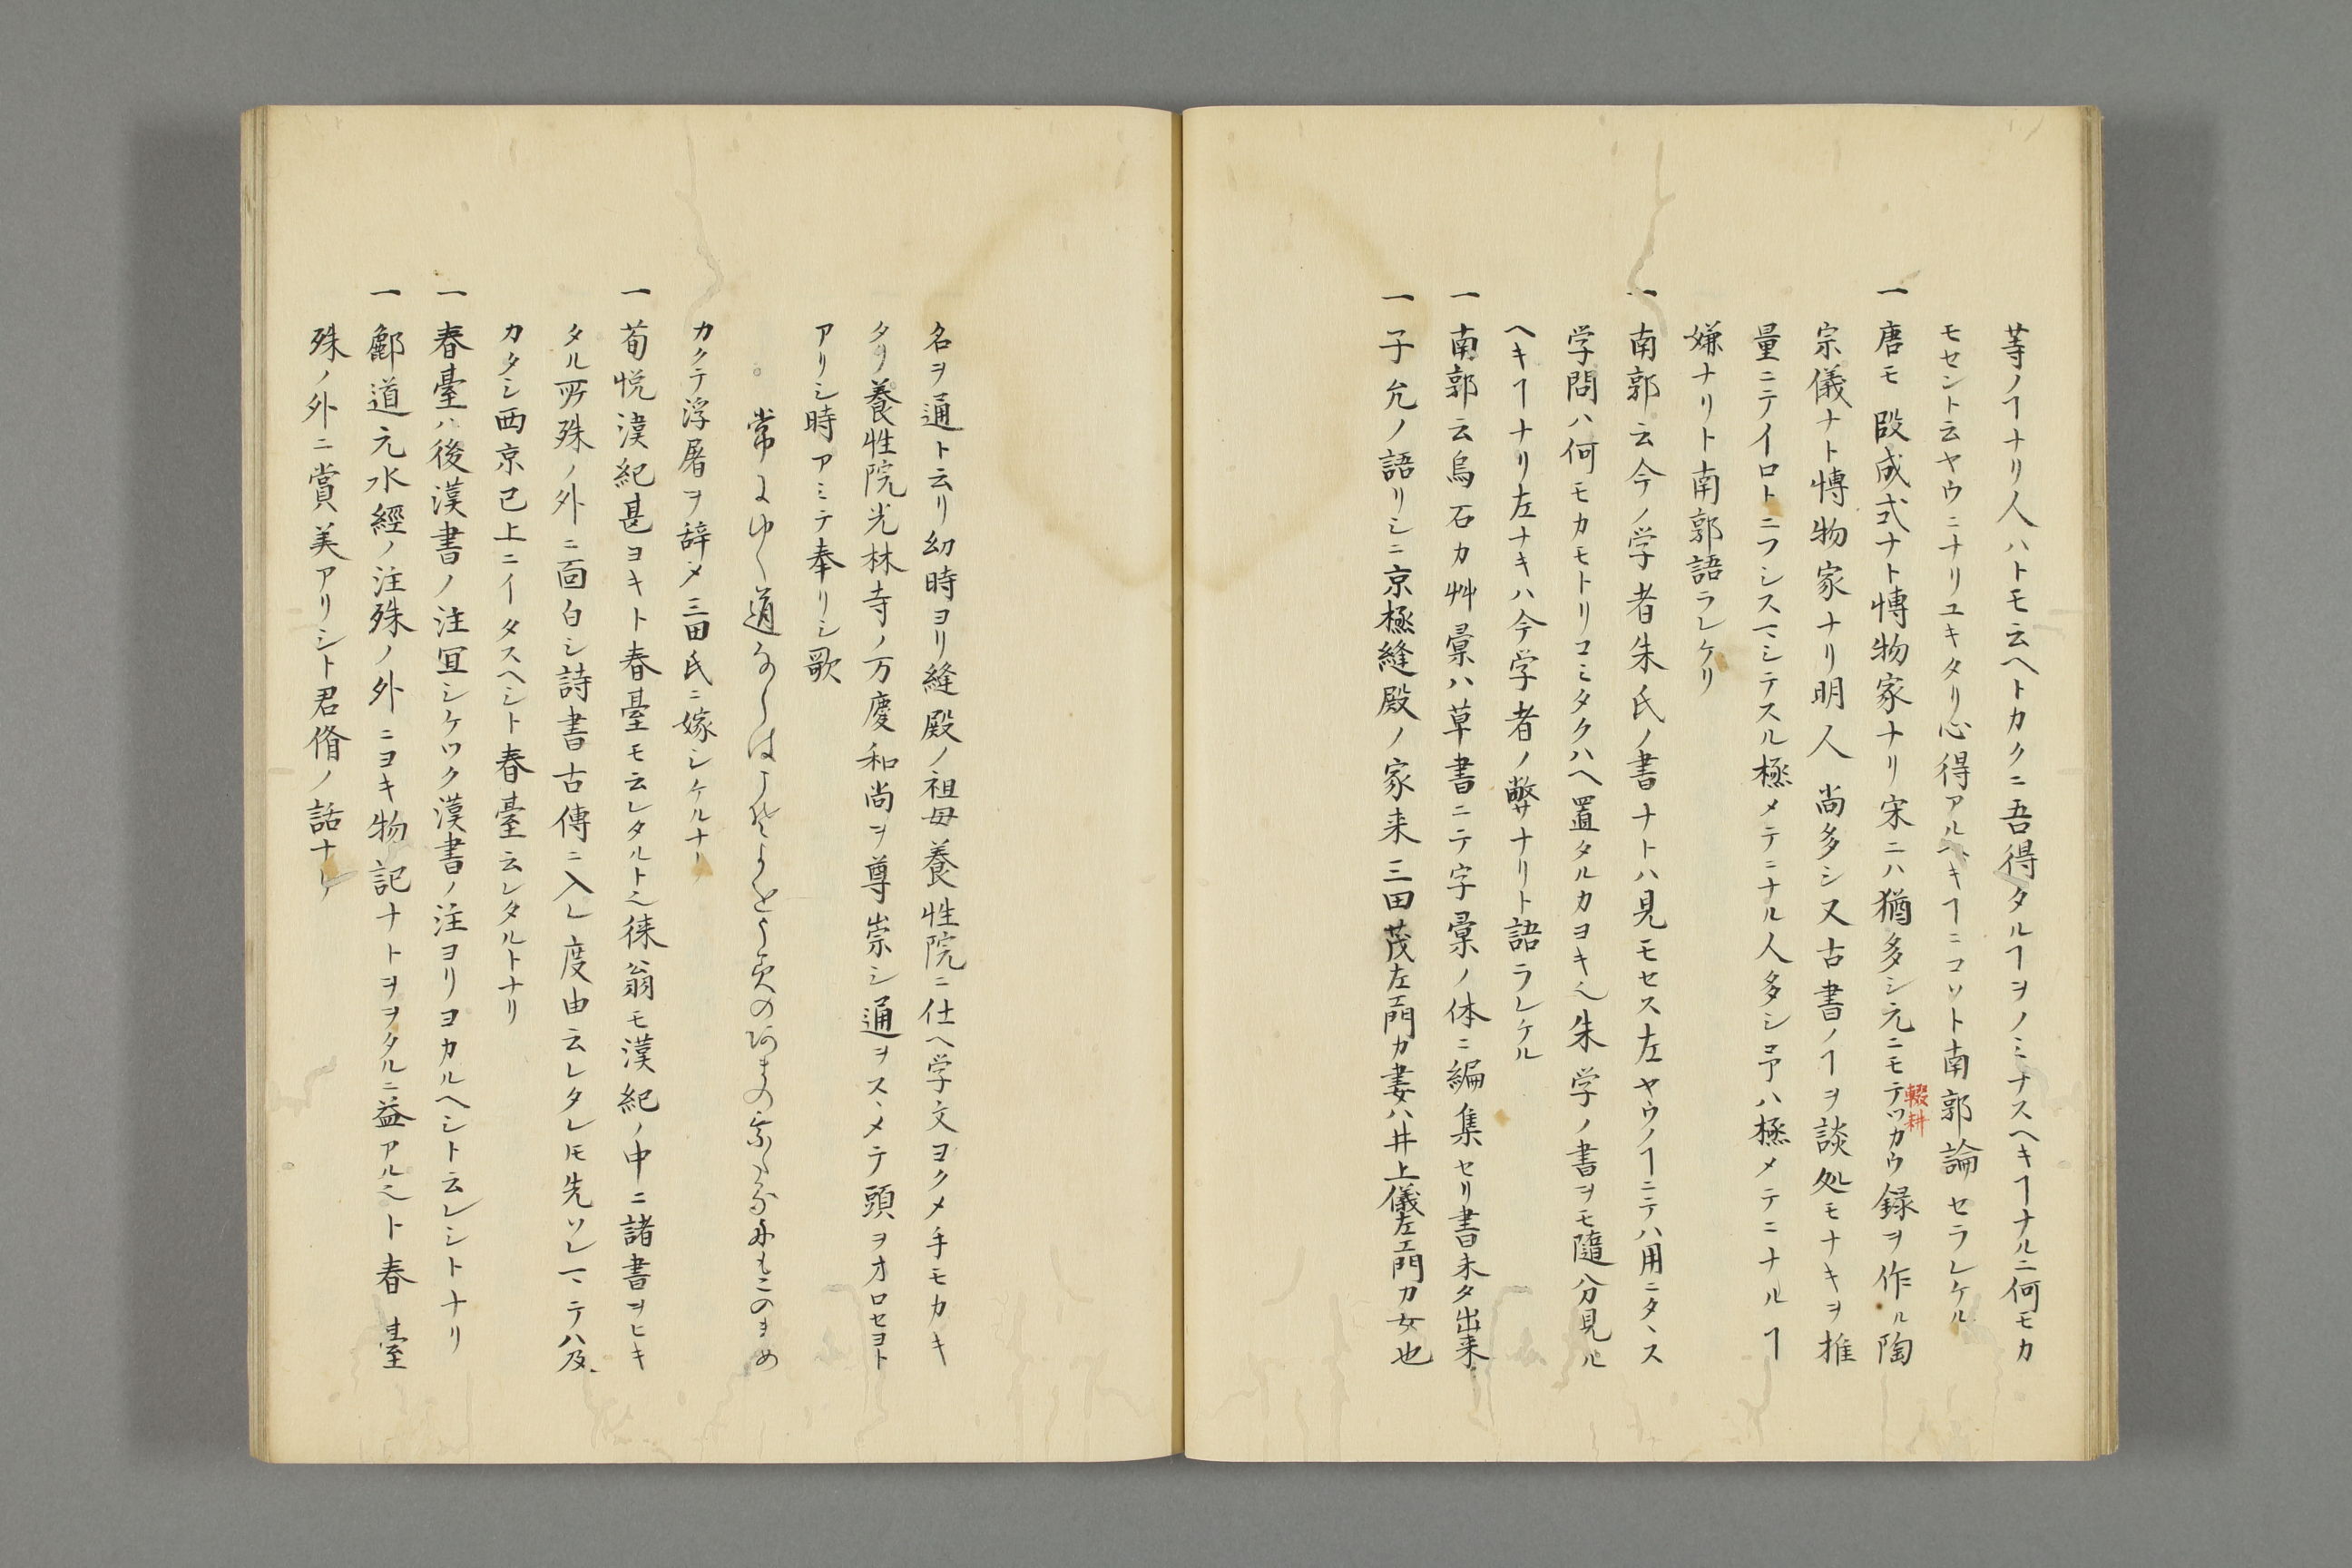 等ノヿナリ人ハトモ云ヘトカクニ吾得タルヿヲノミナスヘキヿナルニ何モカ
モセント云ヤウニナリユキタリ心得アルヘキヿニコソト南郭論セラレケル
一唐モ段成式ナト博物家ナリ宋ニハ猶多シ元ニモテツカウ録ヲ作ル陶
輟耕
宗儀ナト博物家ナリ明人尚多シ又古書ノヿヲ談処モナキヲ推
量ニテイロトニフシスマシテスル極メテニナル人多シ予ハ極メテニナルヿ
嫌ナリト南郭語ラレケリ
一南郭云今ノ学者朱氏ノ書ナトハ見モセス左ヤウノヿニテハ用ニタヽス
学問ハ何モカモトリコミタクハヘ置タルカヨキ也朱学ノ書ヲモ随分見ル
ヘキヿナリ左ナキハ今学者ノ弊ナリト語ラレケル
一南郭云烏石カ艸彙ハ草書ニテ字彙ノ体ニ編集セリ書未タ出来
一子允ノ語リシニ京極縫殿ノ家来三田茂左エ門カ妻ハ井上儀左エ門カ女也
名ヲ通ト云リ幼時ヨリ縫殿ノ祖母養性院ニ仕ヘ学文ヨクメ手モカキ
タリ養性院光林寺ノ万慶和尚ヲ尊崇シ通ヲスヽメテ頭ヲオロセヨト
アリシ時アミテ奉リシ歌
常にゆく道ならは
カクテ浮屠ヲ辞メ三田氏ニ嫁シケルナリ
一荀悦漢紀甚ヨキト春臺モ云レタルト也徠翁モ漢紀ノ中ニ諸書ヲヒキ
タル所殊ノ外ニ面白シ詩書古傳ニ入レ度由云レタレ𪜈先ソレマテハ及
カタシ西京已上ニイタスヘシト春臺云レタルトナリ
一春臺ハ後漢書ノ注宜シケツク漢書ノ注ヨリヨカルヘシト云レシトナリ
一酈道元水經ノ注殊ノ外ニヨキ物記ナトヲヲタルニ益アル也ト春臺
殊ノ外ニ賞美アリシト君脩ノ話ナリ